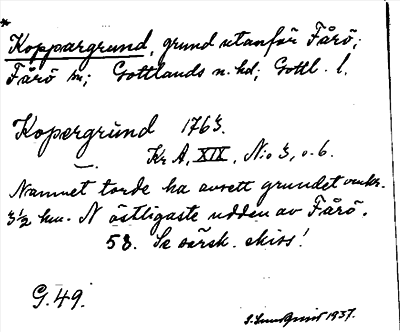 *
Koppargrund, grund utanför Fårö;
Fårö sn; Gottlands n. hd; Gottl. l.
Kopergrund 1763.
Kr A, XIX, N:o 3, o. 6.
Namnet torde ha avsett grundet
3½ km. N östligaste udden av Fårö.
58. Se särsk. skiss!
G. 49.
1937.